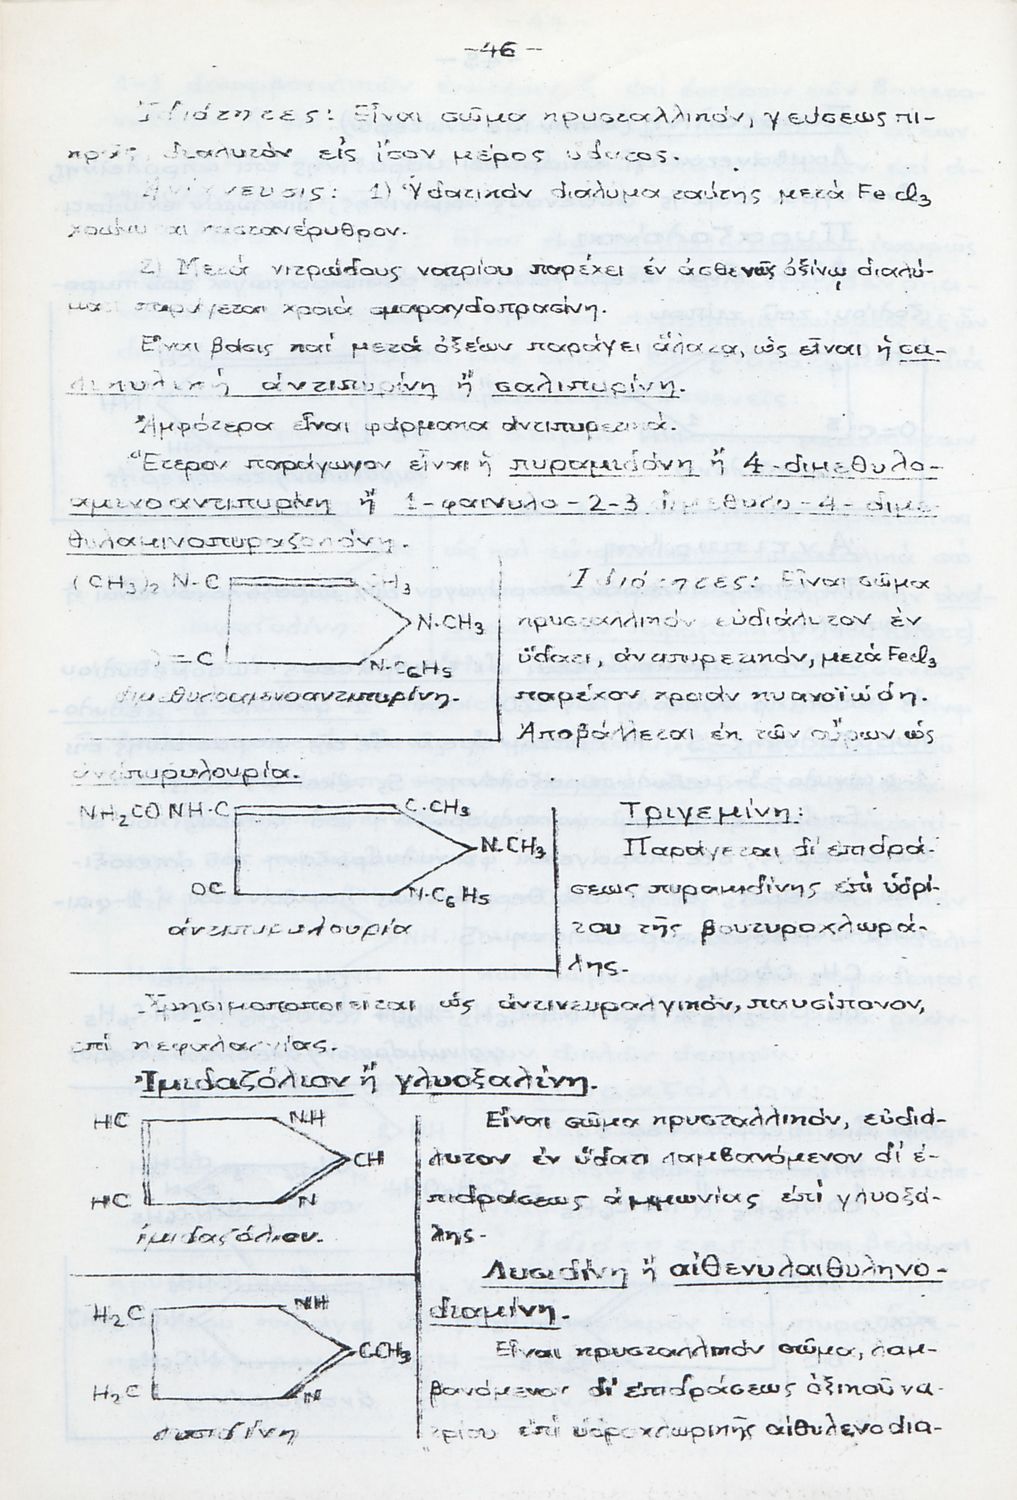 -46-
Ἰδιότητες: Εἶναι σῶμα κρυσταλλικόν, γεύσεως πι-
κρᾶς διαλυτόν εἰς ἴσον μέρος ὕδατος.
Ἀνίχνευσις: 1) Ὑδατικόν διάλυμα ταύτης μετά FeCl3
χρώννυται καστανέρυθρον.
2) Μετά νιτρώδους νατρίου παρέχει ἐν ἀσθενῶς ὀξίνῳ διαλύ-
ματι παράγεται χροιά σμαραγδοπρασίνη.
Εἶναι βάσις καί μετά ὀξέων παράγει ἅλατα, ὡς εἶναι ἡ σα-
λικυλική ἀντιπυρίνη ἤ σαλιπυρίνη.
Ἀμφότερα εἶναι φάρμακα ἀντιπυρετικά.
Ἕτερον παράγωγον εἶναι ἡ πυραμιδόνη ἤ 4-διμεθυλο-
αμινοαντιπυρίνη ἤ 1-φαινυλο-2-3 διμεθυλο-4-διμε-
θυλαμινοπυραζολόνη.
(CH3)2 N-C H3
N-CH3
= C N-C6H5
διμεθυλοαμινοαντιπυρίνη.
Ἰδιότητες: Εἶναι σῶμα
κρυσταλλικόν εὐδιάλυτον ἐν
ὕδατι, ἀντιπυρετικόν, μετά FeCl3
παρέχον χροιάν κυανοϊώδη.
Ἀποβάλλεται ἐκ τῶν οὔρων ὡς
ἀντιπυρυλουρία.
NH2CO NH-C C-CH3
N-CH3
OC N-C6H5
ἀντιπυρυλουρία
Τριγεμίνη:
Παράγεται δι' ἐπιδρά-
σεως πυραμιδίνης ἐπί ὑδρί-
του τῆς βουτυροχλωρά-
λης.
Χρησιμοποποιεῖται ὡς ἀντινευραλγικόν, παυσίπονον,
ἐπί κεφαλαλγίας.
Ἰμιδαζόλιον ἤ γλυοξαλίνη.
HC NH
CH
HC N
ἰμιδαζόλιον.
Εἶναι σῶμα κρυσταλλικόν, εὐδιά-
λυτον ἐν ὕδατι λαμβανόμενον δι' ἐ-
πιδράσεως ἀμμωνίας ἐπί γλυοξά-
λης.
Λυσιδίνη ἤ αἰθενυλαιθυληνο-
διαμίνη.
H2C NH
C-CH3
H2C N
λυσιδίνη
Εἶναι κρυσταλλικόν σῶμα, λαμ-
βανόμενον δι' ἐπιδράσεως ὀξικοῦ να-
τρίου ἐπί ὑδροχλωρικῆς αἰθυλενοδια-